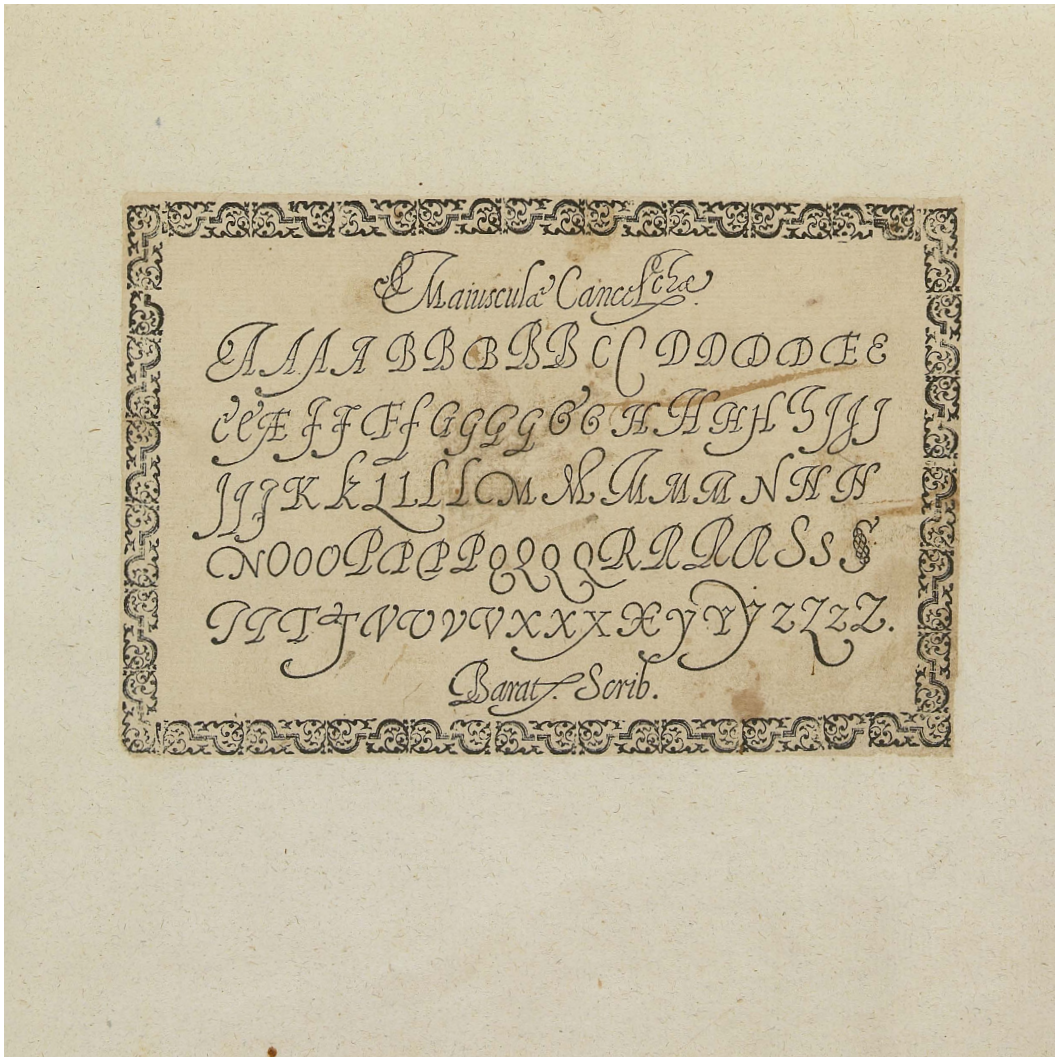 Maiusculæ Cancel.chæ
A A A A B B B B B C C D D D D E E
E E Æ F F Œ F f G G G G G G H H H H H I J J J
J J J K k L L L L M M M M M N H H
N O O O P P P P Q Q Q Q R R R R S S S
T T T T V U V V X X X Æ y Y y Z Z Z Z.
Baraty. Scrib.